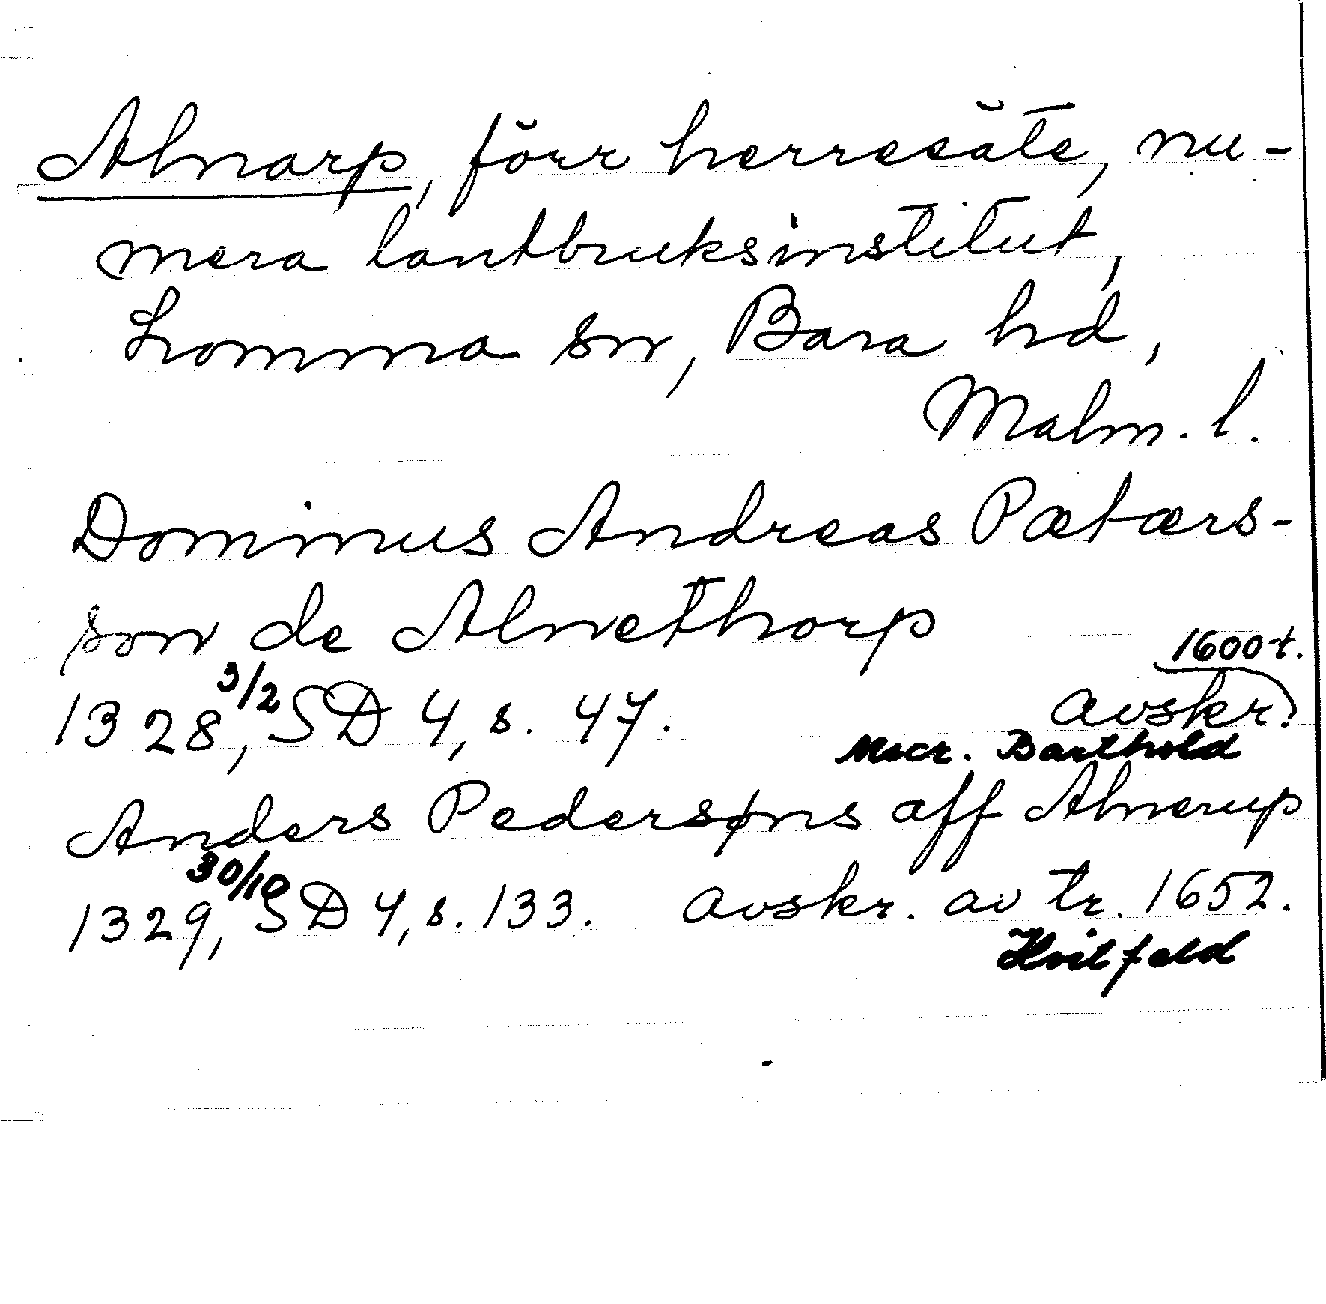 Alnarp, förr herresäte, nu-
mera lantbruksinstitut,
Lomma sn, Bara hd,
Malm. l.
Dominus Andreas Pætærs-
son de Alnethorp
1600 t.
1328 3/2, SD 4, s. 47. avskr.
Mscr. Barthold
Anders Pedersøns aff Alnerup
1329, 30/10 SD 4, s. 133. avskr. av tr. 1652.
Hvitfeld